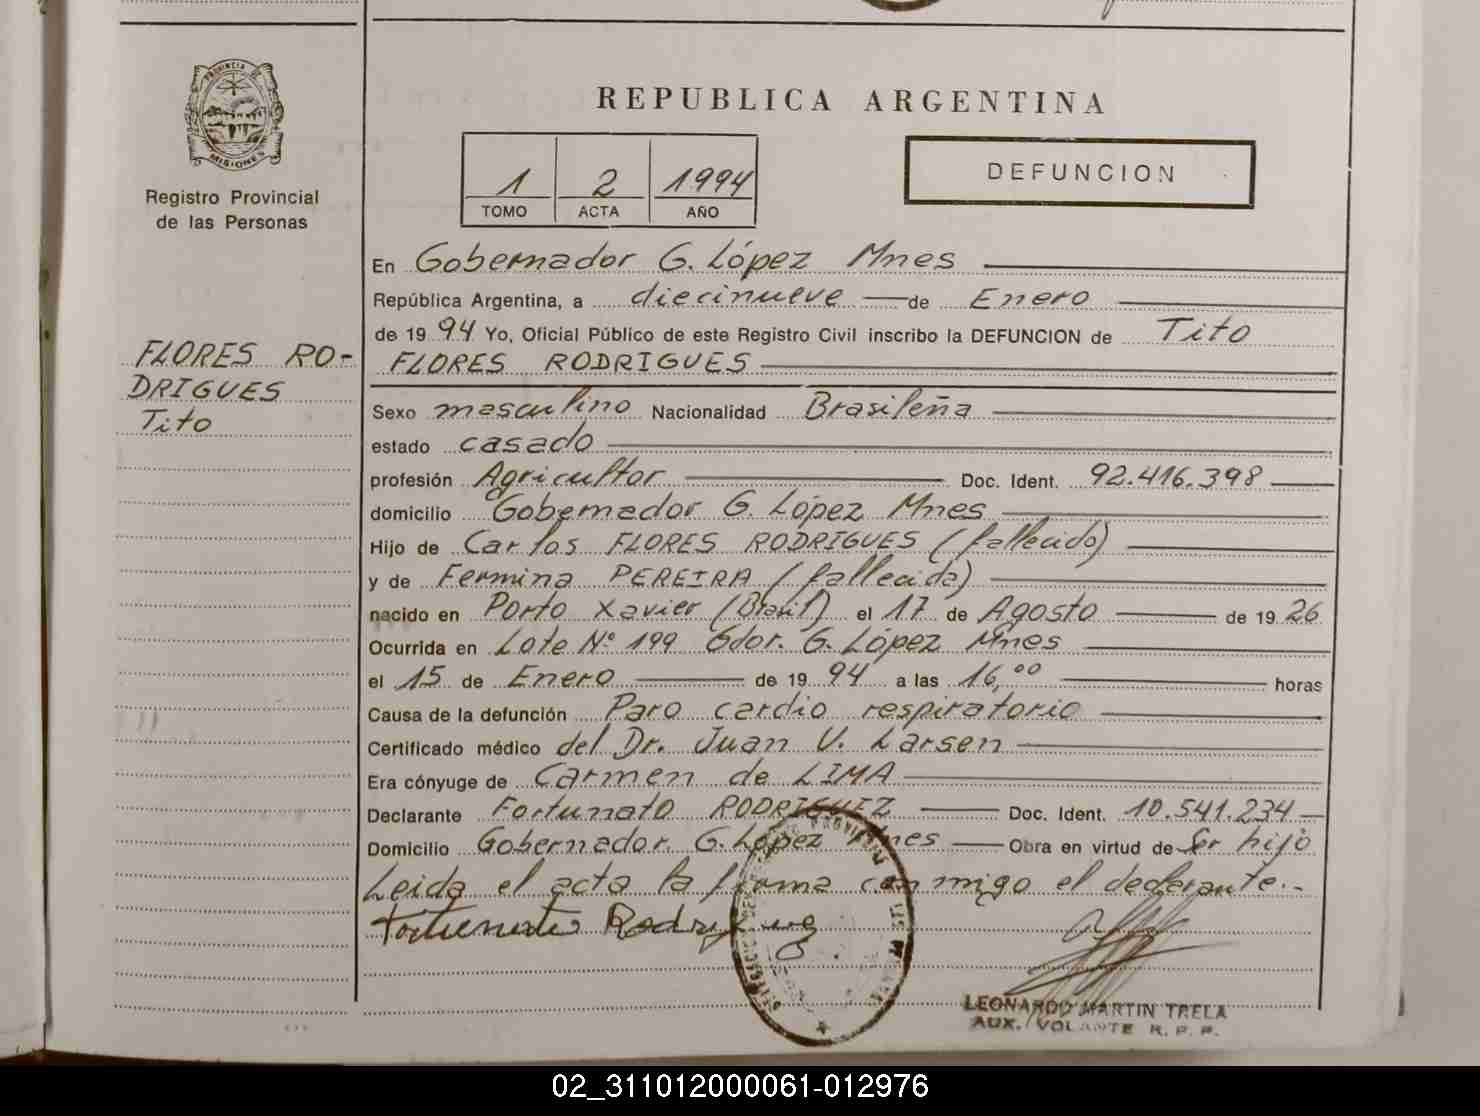 PROVINCIA DE
MISIONES
Registro Provincial
de las Personas
FLORES RO-
DRIGUES
Tito
REPUBLICA ARGENTINA
1 2 1994
TOMO ACTA AÑO
DEFUNCION
En Gobernador G. López Mnes
República Argentina, a diecinueve de Enero
de 1994 Yo, Oficial Público de este Registro Civil inscribo la DEFUNCION de Tito
FLORES RODRIGUES
Sexo masculino Nacionalidad Brasileña
estado casado
profesión Agricultor Doc. Ident. 92.416.398
domicilio Gobernador G. López Mnes
Hijo de Carlos FLORES RODRIGUES (fallecido)
y de Fermina PEREIRA (fallecida)
nacido en Porto Xavier (Brasil) el 17 de Agosto de 1926
Ocurrida en Lote Nº 199 Gdor. G. López Mnes
el 15 de Enero de 1994 a las 16,00 horas
Causa de la defunción Paro cardio respiratorio
Certificado médico del Dr. Juan V. Larsen
Era cónyuge de Carmen de LIMA
Declarante Fortunato RODRIGUEZ Doc. Ident. 10.541.234
Domicilio Gobernador G. López Mnes Obra en virtud de Ser hijo
Leida el acta la firma conmigo el declarante.-
Fortunato Rodriguez
LEONARDO MARTIN TRELA
AUX. VOLANTE R. P. P.
02_311012000061-012976